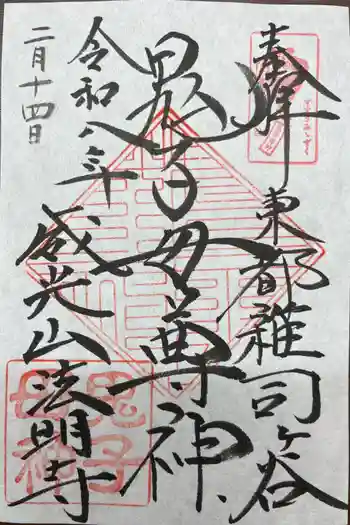 奉拝
東都雑司ヶ谷
鬼子母尊神
令和八年
二月十四日
威光山法明寺
鬼子
母神